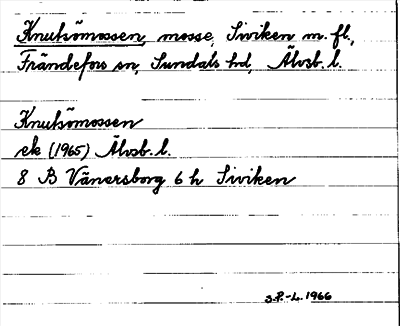 Knutsömossen, mosse, Siviken m. fl.,
Frändefors sn, Sundals hd, Älvsb. l.
Knutsömossen
ek (1965) Älvsb. l.
8 B Vänersborg 6 h Siviken
S.P.-L. 1966